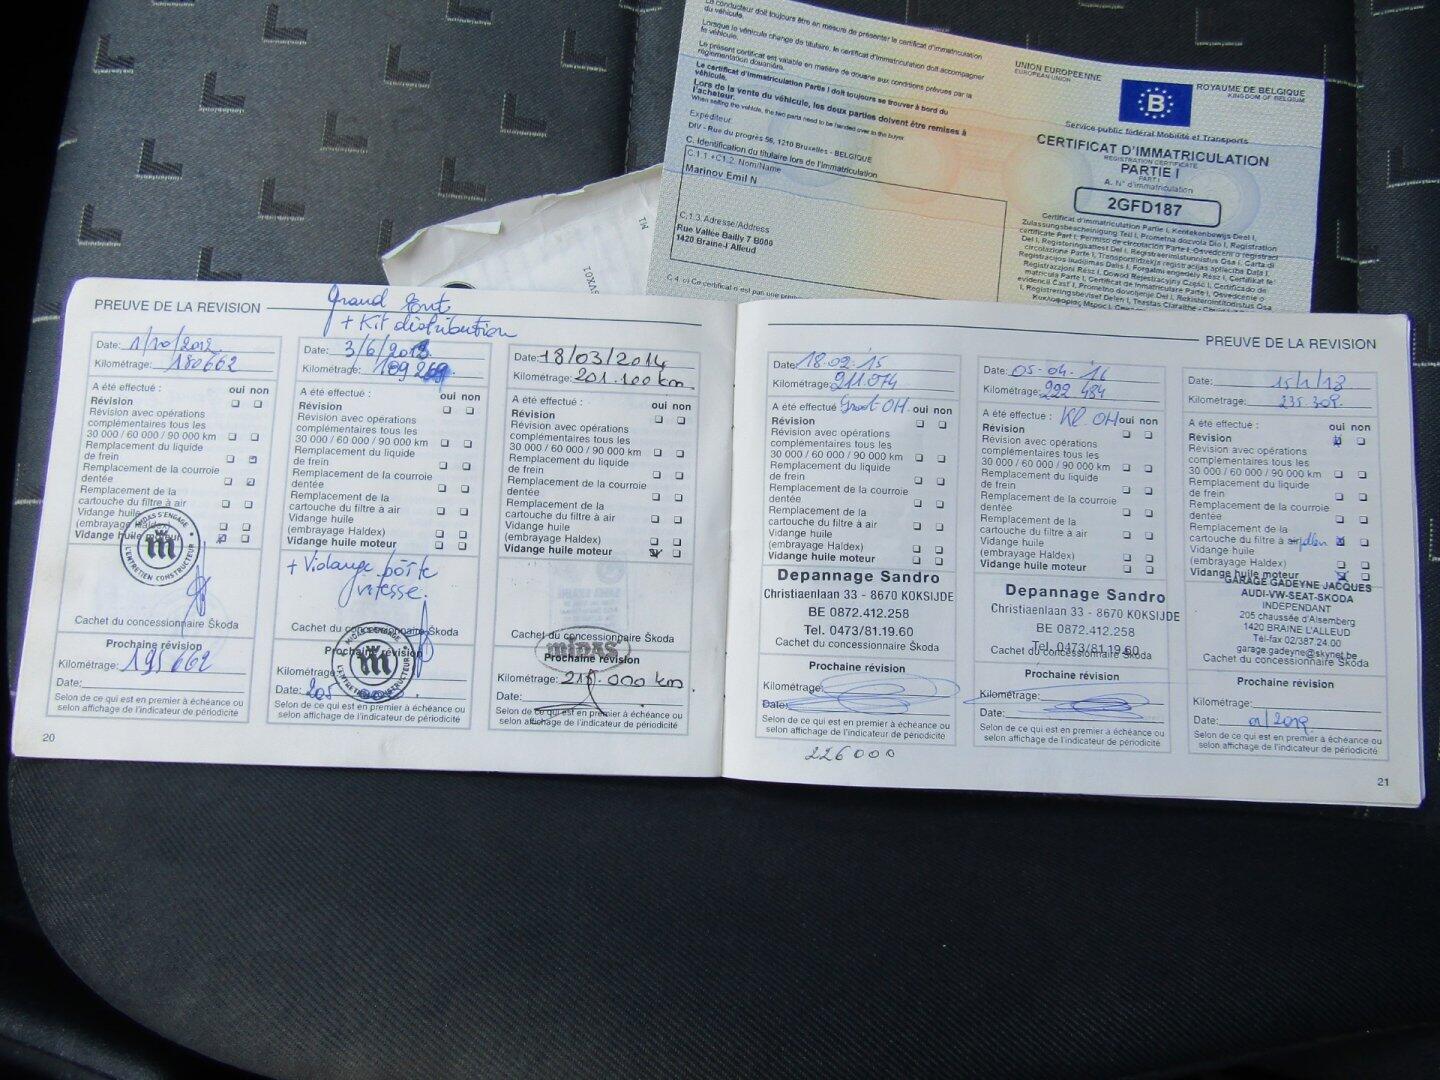 du véhicule.
Le conducteur doit toujours être en mesure de présenter le certificat d'immatriculation
Lorsque le véhicule change de titulaire, le certificat d'immatriculation doit accompagner
le véhicule.
Le présent certificat est valable en matière de douane aux conditions prévues par la
réglementation douanière.
Le certificat d'immatriculation Partie I doit toujours se trouver à bord du
véhicule.
Lors de la vente du véhicule, les deux parties doivent être remises à
l'acheteur.
When selling the vehicle, the two parts need to be handed over to the buyer.
Expéditeur
DIV - Rue du progrès 56, 1210 Bruxelles - BELGIQUE
C. Identification du titulaire lors de l'immatriculation
C.1.1 +C1.2. Nom/Name
Marinov Emil N
C.1.3. Adresse/Address
Rue Vallée Bailly 7 B000
1420 Braine-l Alleud
UNION EUROPEENNE
EUROPEAN UNION
B
ROYAUME DE BELGIQUE
KINGDOM OF BELGIUM
Service public fédéral Mobilité et Transports
CERTIFICAT D'IMMATRICULATION
REGISTRATION CERTIFICATE
PARTIE I
PART I
A. N° d'immatriculation
2GFD187
PREUVE DE LA REVISION
Grand Ent
+ Kit distribution
Date: 1/10/2012
Kilométrage: 180662
A été effectué : oui non
Révision
Révision avec opérations
complémentaires tous les
30 000 / 60 000 / 90 000 km
Remplacement du liquide
de frein
Remplacement de la courroie
dentée
Remplacement de la
cartouche du filtre à air
Vidange huile
(embrayage Haldex)
Vidange huile moteur
MIDAS S'ENGAGE
L'ENTRETIEN CONSTRUCTEUR
m
Cachet du concessionnaire Škoda
Prochaine révision
Kilométrage: 195662
Date:
Selon de ce qui est en premier à échéance ou
selon affichage de l'indicateur de périodicité
20
Date: 3/6/2013
Kilométrage: 189269
A été effectué : oui non
Révision
Révision avec opérations
complémentaires tous les
30 000 / 60 000 / 90 000 km
Remplacement du liquide
de frein
Remplacement de la courroie
dentée
Remplacement de la
cartouche du filtre à air
Vidange huile
(embrayage Haldex)
Vidange huile moteur
+ Vidange boîte
vitesse.
Cachet du concessionnaire Škoda
m
Prochaine révision
Kilométrage:
Date: 205
Selon de ce qui est en premier à échéance ou
selon affichage de l'indicateur de périodicité
Date: 18/03/2014
Kilométrage: 201.100 km
A été effectué : oui non
Révision
Révision avec opérations
complémentaires tous les
30 000 / 60 000 / 90 000 km
Remplacement du liquide
de frein
Remplacement de la courroie
dentée
Remplacement de la
cartouche du filtre à air
Vidange huile
(embrayage Haldex)
Vidange huile moteur
Cachet du concessionnaire Škoda
MIDAS
Prochaine révision
Kilométrage: 000 km
Date:
Selon de ce qui est en premier à échéance ou
selon affichage de l'indicateur de périodicité
PREUVE DE LA REVISION
Date: 18.02.'15
Kilométrage: 211.074
A été effectué Groot OH. oui non
Révision
Révision avec opérations
complémentaires tous les
30 000 / 60 000 / 90 000 km
Remplacement du liquide
de frein
Remplacement de la courroie
dentée
Remplacement de la
cartouche du filtre à air
Vidange huile
(embrayage Haldex)
Vidange huile moteur
Depannage Sandro
Christiaenlaan 33 - 8670 KOKSIJDE
BE 0872.412.258
Tel. 0473/81.19.60
Cachet du concessionnaire Škoda
Prochaine révision
Kilométrage:
Date:
Selon de ce qui est en premier à échéance ou
selon affichage de l'indicateur de périodicité
226000
Date: 05-04.'16
Kilométrage: 222 484
A été effectué : Kl. OH oui non
Révision
Révision avec opérations
complémentaires tous les
30 000 / 60 000 / 90 000 km
Remplacement du liquide
de frein
Remplacement de la courroie
dentée
Remplacement de la
cartouche du filtre à air
Vidange huile
(embrayage Haldex)
Vidange huile moteur
Depannage Sandro
Christiaenlaan 33 - 8670 KOKSIJDE
BE 0872.412.258
Tel. 0473/81.19.60
Cachet du concessionnaire Škoda
Prochaine révision
Kilométrage:
Date:
Selon de ce qui est en premier à échéance ou
selon affichage de l'indicateur de périodicité
Date: 15/1/18
Kilométrage: 235.309.
A été effectué : oui non
Révision
Révision avec opérations
complémentaires tous les
30 000 / 60 000 / 90 000 km
Remplacement du liquide
de frein
Remplacement de la courroie
dentée
Remplacement de la
cartouche du filtre à air
Vidange huile
(embrayage Haldex)
Vidange huile moteur
GARAGE GADEYNE JACQUES
AUDI-VW-SEAT-SKODA
INDEPENDANT
205 chaussée d'Alsemberg
1420 BRAINE L'ALLEUD
Tel-fax 02/387.24.00
garage.gadeyne@skynet.be
Cachet du concessionnaire Škoda
Prochaine révision
Kilométrage:
Date: 01/2019
Selon de ce qui est en premier à échéance ou
selon affichage de l'indicateur de périodicité
21